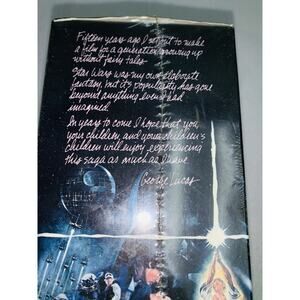 Fifteen years ago I set out to make
a film for a generation growing up
without fairy tales.
Star Wars was my own elaborate
fantasy, but it's popularity has gone
beyond anything I ever had
imagined.
In years to come I hope that you
your children, and your children's
children will enjoy experiencing
this saga as much as I have.
George Lucas